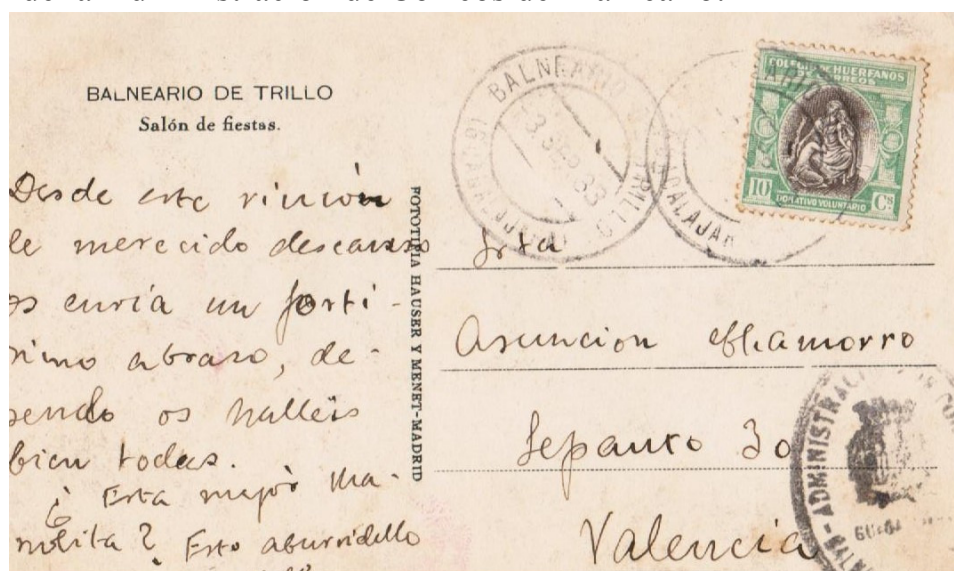 BALNEARIO DE TRILLO
Salón de fiestas.
Desde este rincón
de merecido descanso
os envía un fortí-
simo abrazo, de-
seando os halleis
bien todas.
¿Esta mejor Ma-
nolita? Esto aburridello
FOTOTIPIA HAUSER Y MENET-MADRID
BALNEARIO DE TRILLO
3 SEP 33
COLEGIO DE HUERFANOS
DE CORREOS
10 Cts
DONATIVO VOLUNTARIO
Srta
Asuncion Chamorro
Lepanto 30
Valencia
ADMINISTRACI